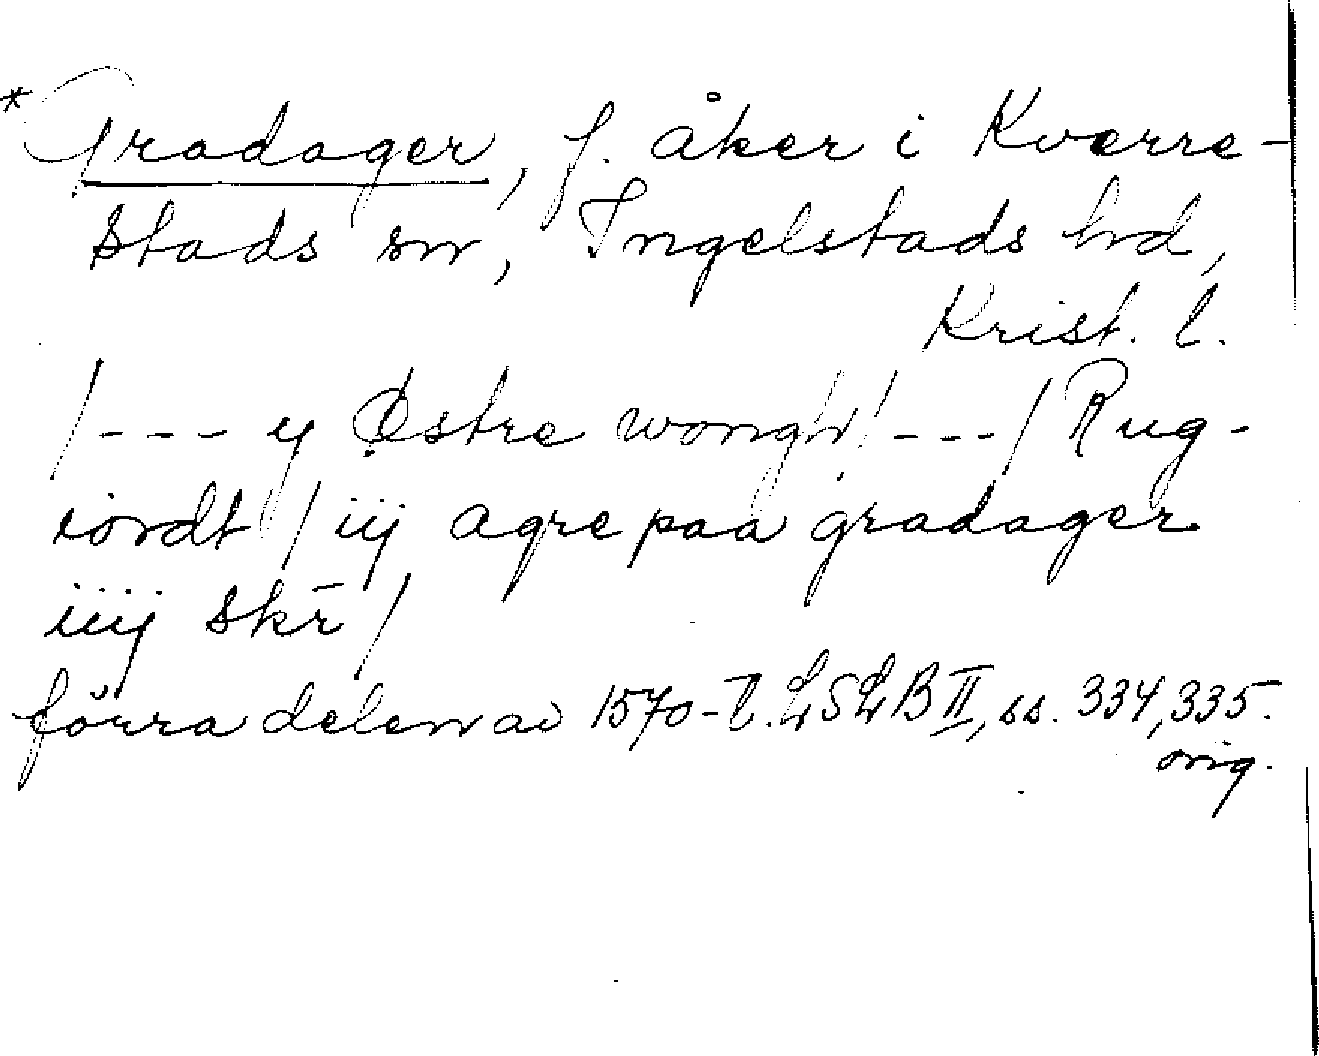 *Gradager, f. åker i Kverre-
stads sn, Ingelstads hd,
Krist. l.
/--- y Østre wongh! ---/ Rug-
iordt / iij agre paa gradager
iiij skr̄ /
förra delen av 1570-t. LSLB II, ss. 334, 335.
orig.